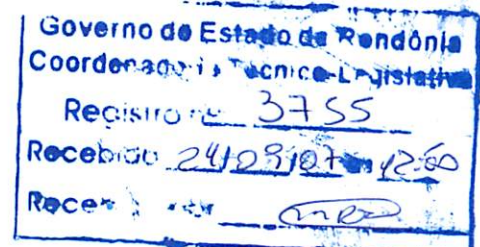 Governo do Estado de Rondônia
Coordenadoria Técnico-Legislativa
Registro nº 3755
Recebido 24/09/07 às 12:00
Recebido por